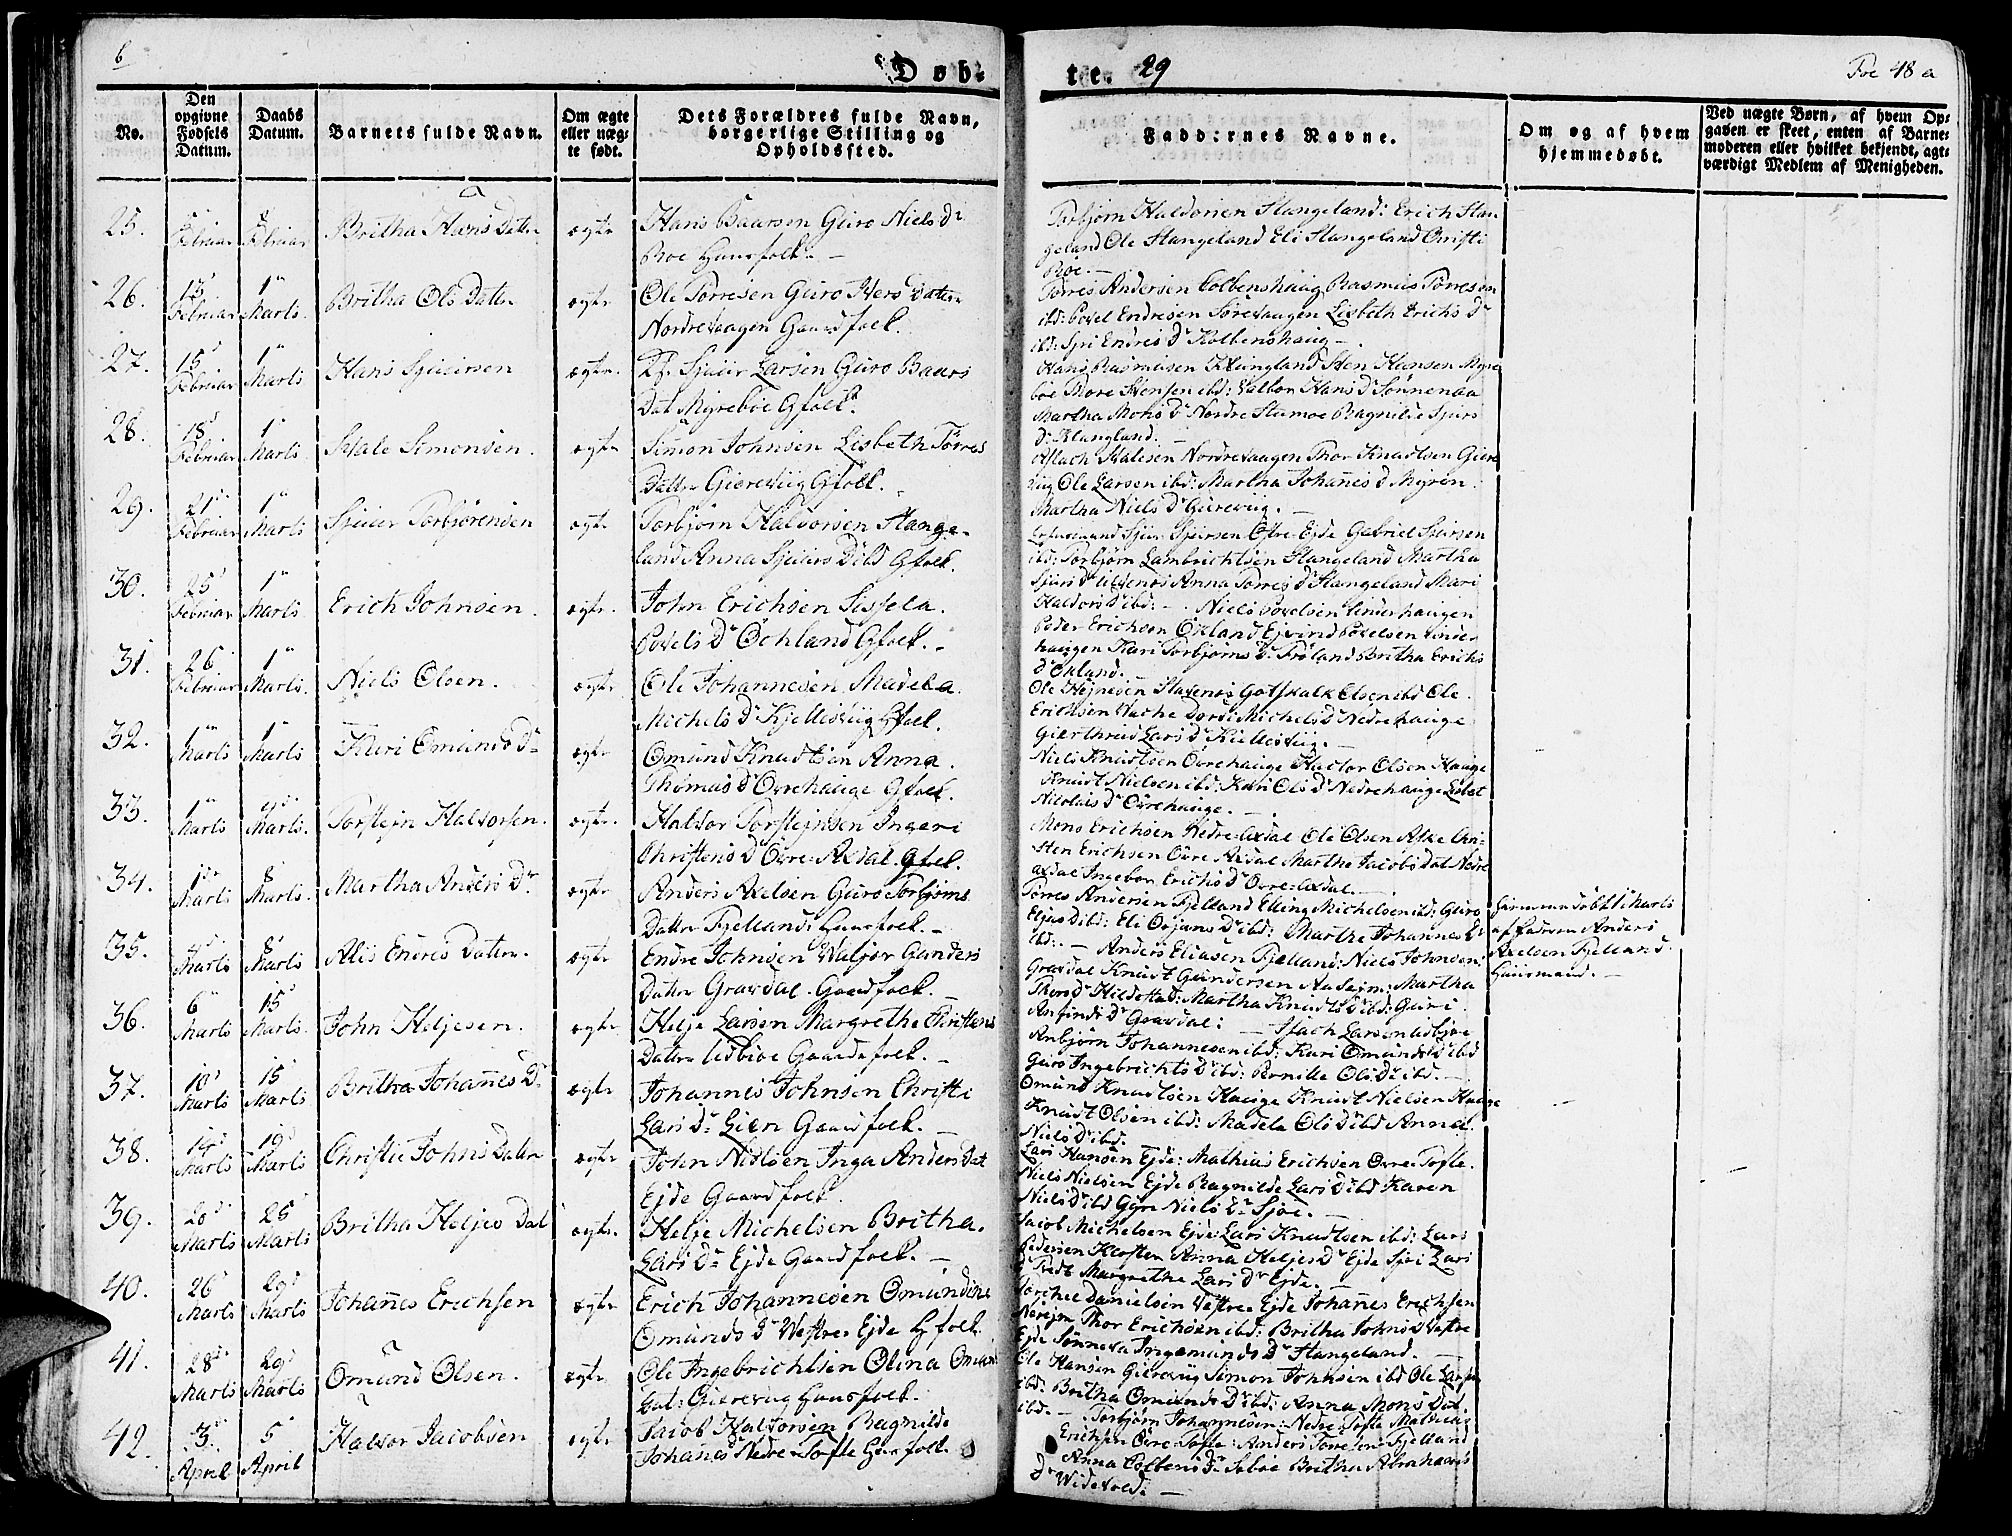 6
Døb-
te. 29
Foe 48 a
No.
Den opgivne Fødsels Datum.
Daabs Datum.
Barnets fulde Navn.
Om ægte eller uægte født.
Dets Forældres fulde Navn, borgerlige Stilling og Opholdssted.
Faddernes Navne.
Om og af hvem hjemmedøbt.
Ved uægte Børn, af hvem Opgaven er skeet, enten af Barnemoderen eller hvilket bekjendt, agtværdigt Medlem af Menigheden.
25. Februar 8 Februar Britha Hans Datter ægte Hans Baarsen Guro Niels Dr
Roe Huusfolk. —
Torbjørn Haldorsen Stangeland: Erich Stan-
geland Ole Stangeland Eli Stangeland Christi
Roe. —
26. 13 Februar 1 Marts. Britha Ols Datter ægte Ole Torresen Guro Ivers Datter
Nordrevaagen Gaardfolk.
Torres Andersen Kolbenshaug Rasmus Torresen
ibd: Povel Endresen Sørevaagen Lisbeth Erichs Dr
ibd: Siri Endres Dr Kolbenshaug —.
27. 15 Februar 1 Marts Hans Sjursen ægte. Sjuur Larsen Guro Baars
Dat Myreboe Gfolk.
Hans Rasmusen Klungland Sten Hansen Myre
boe Thore Stensen ibd: Valbor Hans Dr Sønnenaa
Martha Mons Dr Nordre Stumoe Ragnilde Sjurs
Dr Klungland.
28. 18 Februar 1 Marts Sjale Simonsen. ægte Simon Johnsen Lisbeth Torres
Datter Gierevig Gfolk.
Aslach Salesen Nordrevaagen Thor Knudtsen Giere
vig Ole Larsen ibd: Martha Johanes D Myren.
Martha Niels Dr Gierevig. —
29. 21 Februar 1 Marts Sjuur Torbjørensen ægte Torbjørn Haldorsen Stange-
land Anna Sjuurs D ibd Gfolk.
Sjur Sjursen Østre Ejde Gabriel Sjursen
ibd: Torbjørn Lambrichtsen Stangeland Martha
Anna Torres Dr Stangeland Mari
Haldors Dr ibd: —
30. 25 Februar 1 Marts Erich Johnsen. ægte. John Erichsen Sissela.
Povels Dr Øchland Gfolk. —
Niels Povelsen Sinderhaugen
Peder Erichsen Øxland Ejvind Povelsen Sinder
haugen Kari Torbjørns Dr Frøland Britha Erichs
Dr Øxland. —
31. 26 Februar 1 Marts. Niels Olsen. ægte Ole Johannesen Madela.
Michels Dr Kjellesviig Gfolk.
Ole Højnesen Stavenes Gotskalk Olsen ibd Ole.
Erichsen Vache Dordi Michels Dr Nedrehauge
Gierthrud Lars Dr Kiellesviig. —
32. 1 Marts 1 Marts Kari Omunds Dr ægte Omund Knudtsen Anna.
Thomas D Øvrehauge Gfolk.
Niels Knudtsen Øvrehauge Hactor Olsen Hauge
Knudt Nielsen ibd: Kari Ols Dr Nedrehauge Lisbet
Nicolais Dr Øvrehauge. —
33. 1 Marts Marts. Torstejn Halvorsen. ægte. Halvor Torstejnsen Ingeri
Christens D Øvre Axdal. Gfol.
Mons Erichsen Nedre Axdal Ole Olsen Aske Chri-
sten Erichsen Øvre Axdal Martha Jacobs Dat Nedre
axdal Ingebor Erichs Dr Øvre axdal.
34. 1 Marts 8 Marts. Martha Anders Dr ægte Anders Axelsen Guro Torbjørns
Datter Fjelland: Huusfolk. —
Torres Andersen Fjelland Elling Michelsen ibd: Guro
Martha Johannes D
ibd. —
Hjemmedøbt 1 Marts
af Fadren Anders
Axelsen Fjelland.
Huusmand. —
35. 4 Marts 8 Marts Alis Endres Datter. ægte Endre Johnsen Valjør Gunders
Datter Gravdal. Gaardfolk. —
Anders Eliasen Fjelland: Niels Johnsen:
Gravdal Knudt Gundersen Aasejm: Martha
Thores D Hildestad: Martha Knudts Dr ibd: Guri
Anfinds Dr Gravdal: —
36. 6 Marts 15 Marts. John Heljesen. ægte Helje Larsen Margrethe Christens
Datter Usbiøe Gaardsfolk. —
Isach Larsen Usbjøe
Anbjørn Johannesen ibd: Kari Omunds Dr ibd
Guro Ingebrichts Dr ibd: Pernille Ols Dr ibd. —
37. 10 Marts 15 Marts Britha Johanes Dr ægte Johannes Johnsen Christi
Lars Dr Lien Gaardfolk. —
Omund Knudtsen Hauge Knudt Nielsen Hauge
Knudt Olsen ibd: Madela Ols Dr ibd Anna.
Niels D ibd.
38. 14 Marts 19 Marts Christie Johns Datter ægte John Nielsen Inga Anders Dat
Ejde Gaardfolk.
Lars Hansen Ejde: Mathias Erichsen Øvre Tofte.
Niels Nielsen Ejde Ragnilde Lars Dr ibd Karen
Niels Dr ibd Gyri Niels Dr Sjøe. —
39. 20 Marts 25 Marts Britha Heljes Dat ægte. Helje Michelsen Britha.
Lars Dr Ejde Gaardfolk. —
Jacob Michelsen Ejde Lars Knudtsen ibd: Lars
Pedersen Anna Heljes Dr Ejde Siri Lars
Margretha Lars Dr Ejde. —
40. 26 Marts 29 Marts Johanes Erichsen ægte Erich Johannesen Omundine
Omunds Dr Vestre Ejde Gfolk.
Danielsen Vestre Ejde Johanes Erichsen
Thor Erichsen ibd: Britha Johns D Vestre
Ejde Sønneva Ingemunds Dr Stangeland. —
41. 28 Marts 29 Marts Omund Olsen. ægte Ole Ingebrichtsen Olina Omunds
Dat: Gierevig Huusfolk.
Ole Hansen Gierevig Simon Johnsen ibd Ole Larsen
ibd: Britha Omunds Dr ibd: Anna Mons Dat.
ibd. —
42. 3 April 5 April Halvor Jacobsen ægte Jacob Halvorsen Ragnilde
Johanes D Nedre Tofte Huusfolk.
Torbjørn Johannesen: Nedre Tofte Mathias
Erichsen Øvre Tofte: Anders Torresen Fjelland
Anna Colbens Dr Sebøe Britha Abrahams
Dr Videvold: —